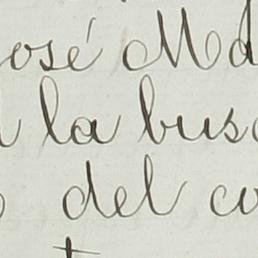 osé Ma
la busc
del co